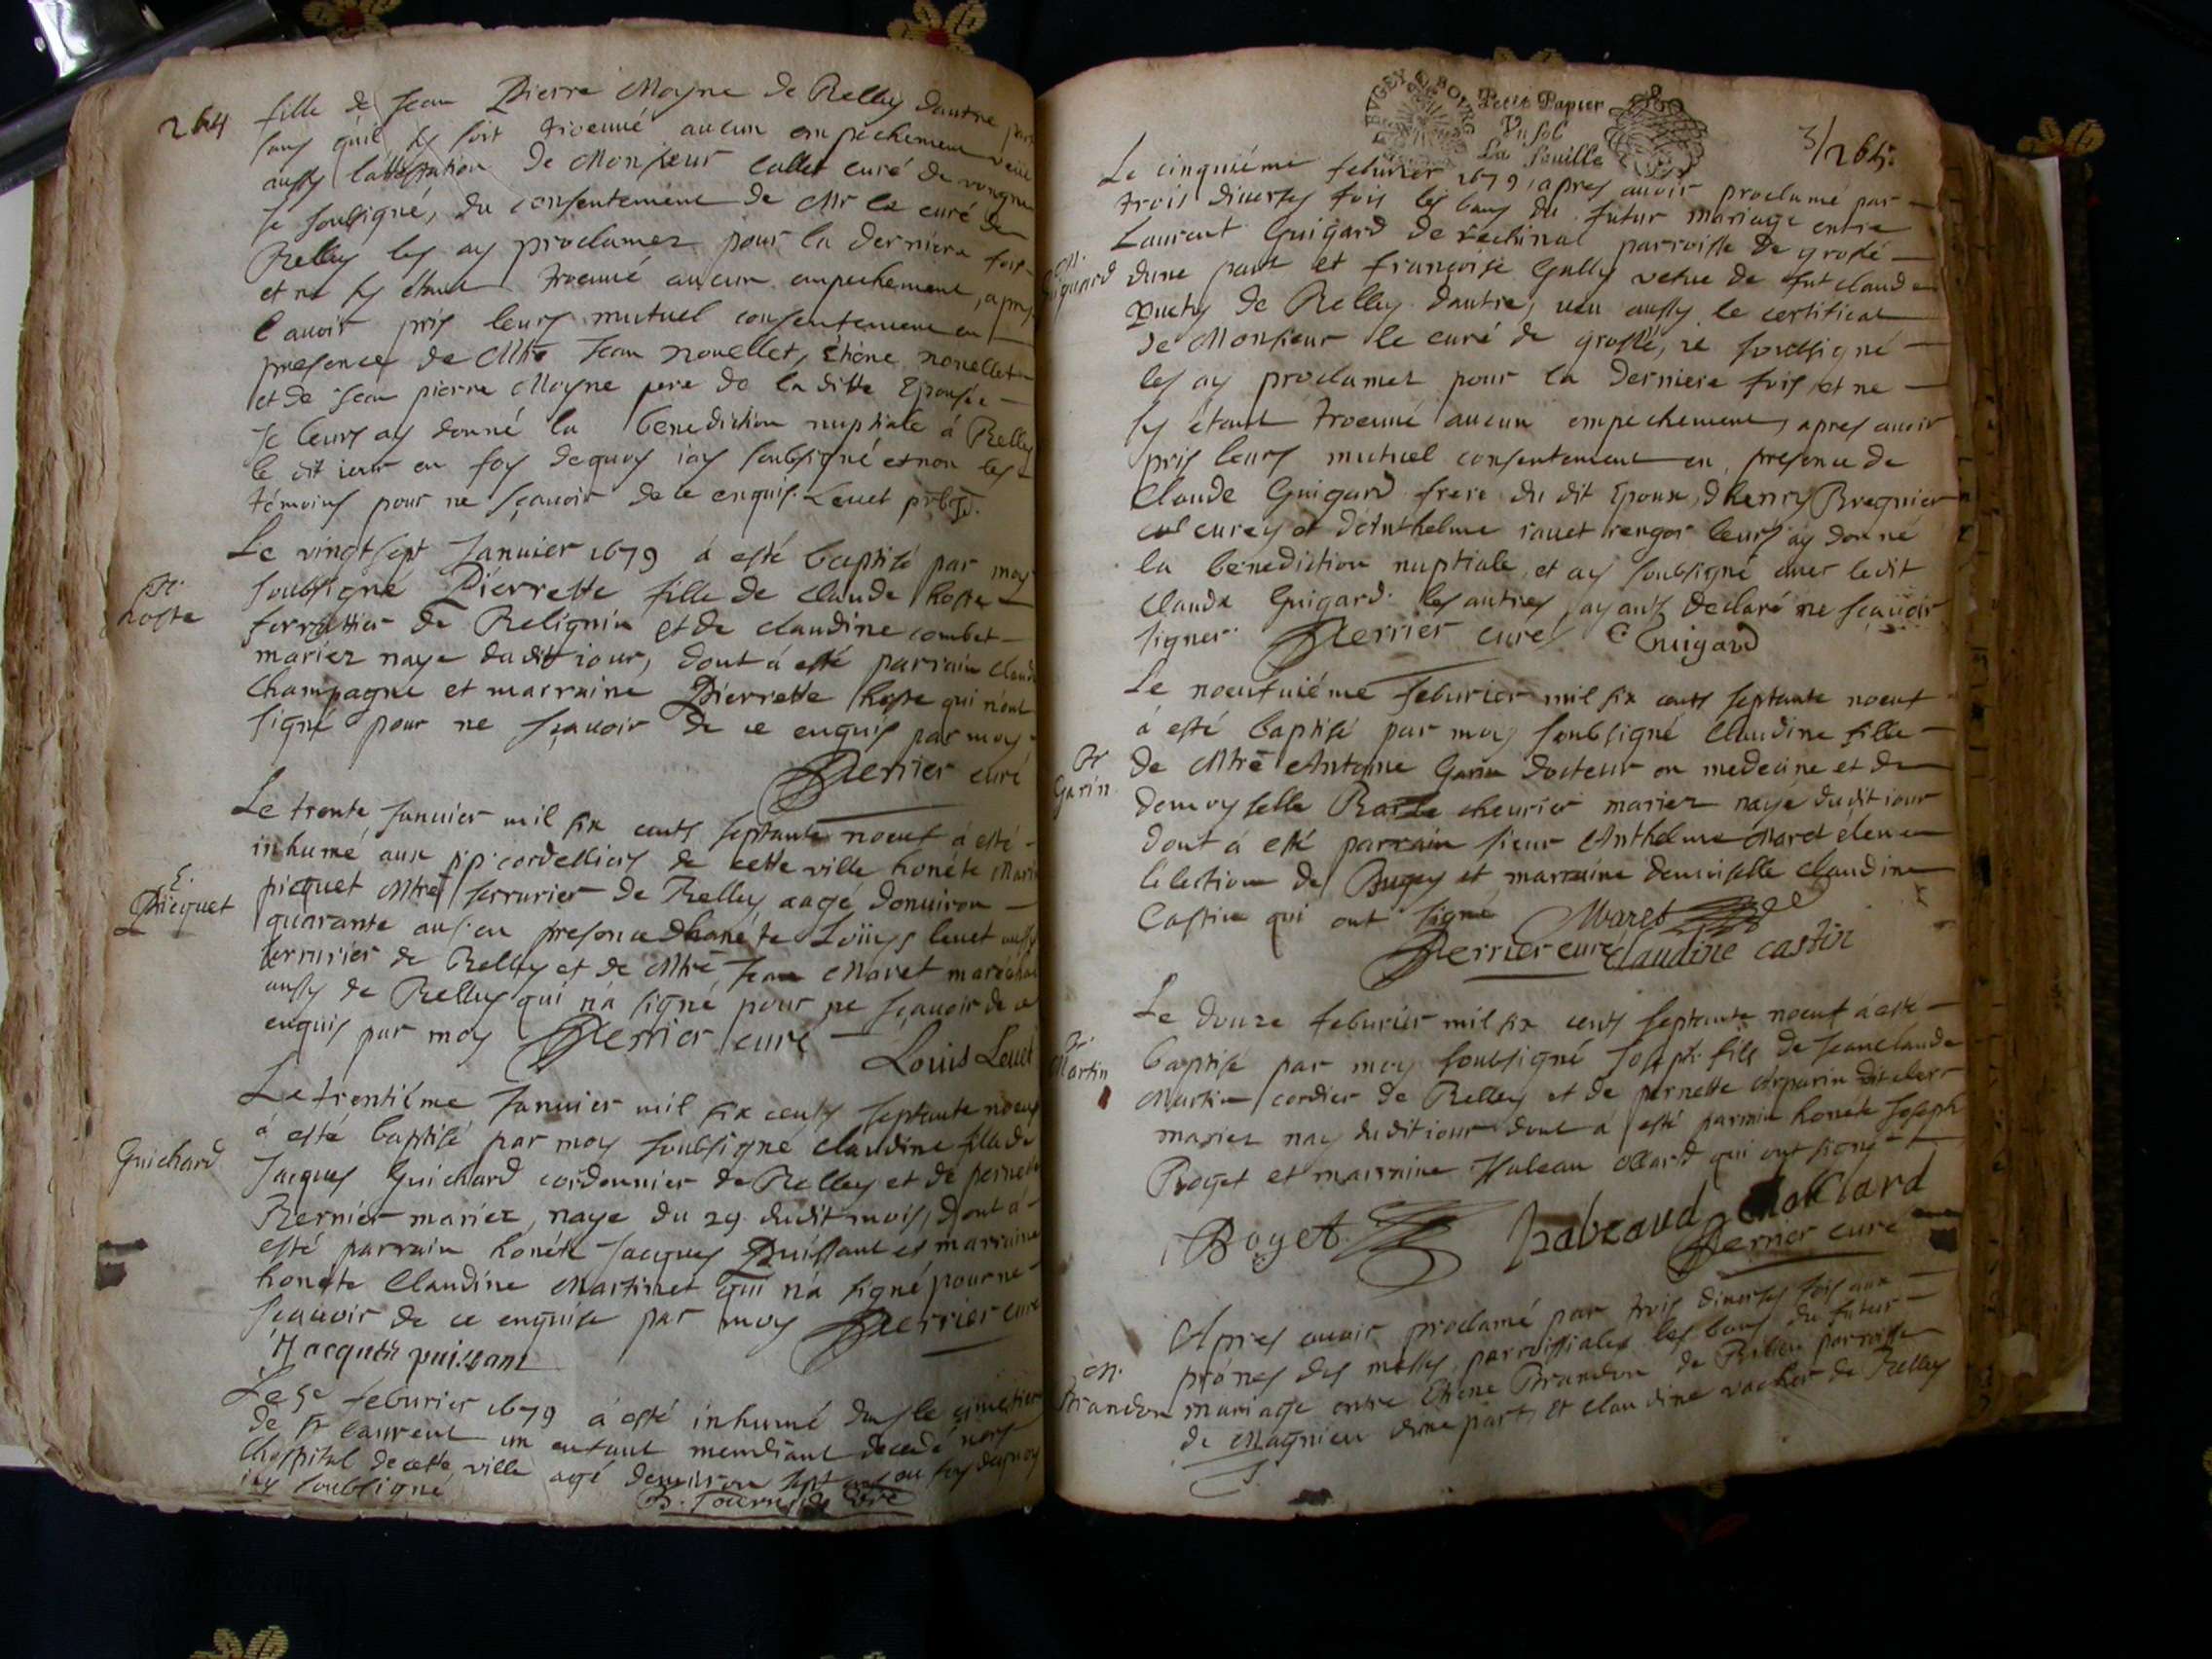 264
fille de Jean Pierre Moyne de Belley dautre part
sans quil sy soit troeuué aucun empechement veüe
aussy lattestation de Monsieur Callet curé de
Je soubsigné, du consentement de Mr le curé de
Belley les ay proclamez pour la derniere fois
et ne sy étant troeuué aucun empechement, apres
l'auoir pris leurs mutuel consentement en
presence de Mtre Jean nouellet, Etiene nouellet
et de Jean pierre Moyne pere de la ditte Epousée
Je leurs ay donné la benediction nuptiale á Belley
le dit iour en foy dequoy iay soubsigné et non les
témoins pour ne sçauoir de ce enquis. Leuet
Le vingt sept Januier 1679 á esté baptisé par moy
hoste
soubsigné Pierrette fille de Claude hoste
de Belignin et de claudine combet
mariez naye dudit iour, dont á esté parrain Claude
Champagne et marraine Pierrette hoste qui n'ont
signé pour ne sçauoir de ce enquis par moy
Perrier curé
Le trente Januier mil six cents septante noeuf á esté
inhumé aux pp cordelliers de cette ville honéte
E.
Picquet
picquet Mtre serrurier de Belley aagé denuiron
quarante ans en presence dhonéte Loüys leuet aussy
serrurier de Belley et de Mtre Jean Maret maréchal
aussy de Belley qui n'á signé pour ne sçauoir de ce
enquis par moy Perrier curé
Louis Leuet
Le trentiéme Januier mil six cents septante noeuf
á esté baptisé par moy soubsigné claudine fille de
Guichard
Jacques Guichard cordonnier de Belley et de pernette
Bernier mariez, naye du 29 dudit mois, dont á
esté parrain honéte Jacques Puissant et marraine
honéte Claudine Martinet qui n'á signé pour ne
sçauoir de ce enquise par moy Perrier curé
Jacques puissant
Le 5e feburier 1679 á esté inhumé dans le cimetier
de st laurent un enfant mendiant decedé
lhospital de cette ville agé denuiron sept ans en foy dequoy
iay soubsigné
BUGEY BOURG
Petit Papier
Vn sol
La feuille
3/265.
Le cinquiéme feburier 1679, apres auoir proclamé par
trois diuerses fois les bans du futur mariage entre
Laurent Guigard de parroisse de groslé
m.
Guiguard
dune part et françoise Gully vefue de fut claude
de Belley dautre, veu aussy le certificat
de Monsieur le curé de groslé, Je soubsigné
les ay proclamez pour la derniere fois et ne
sy étant troeuué aucun empechement, apres auoir
pris leurs mutuel consentement en presence de
Claude Guigard frere du dit Epoux, dhenry Bregnier
et dAnthelme leurs ay donné
la benediction nuptiale, et ay soubsigné auec ledit
Claude Guigard. les autres ayants declaré ne sçauoir
signer. Perrier curé C Guigard
Le noeufuiéme feburier mil six cents septante noeuf
á esté baptisé par moy soubsigné Claudine fille
Garin
de Mtre Antoine Garin docteur en medecine et de
demoyselle cheurier mariez nayé dudit iour
dont á esté parrain sieur Anthelme Maret éleu en
lélection de Bugey et marraine demoiselle claudine
Castin qui ont signé Maret
Perrier curé claudine castin
Le douze feburier mil six cents septante noeuf á esté
Martin
baptisé par moy soubsigné Joseph fils de Jeanclaude
Martin cordier de Belley et de pernette
mariez nay dudit iour dont á esté parrain honéte Joseph
Boget et marraine qui ont signé
Boget Isabeaud
Perrier curé
Apres auoir proclamé par trois diuerses fois aux
prónes des messes parroissiales les bans du futur
m.
Brandon
mariage entre Etiene Brandon de parroisse
de Magnieu dune part, Et claudine vacher de Belley